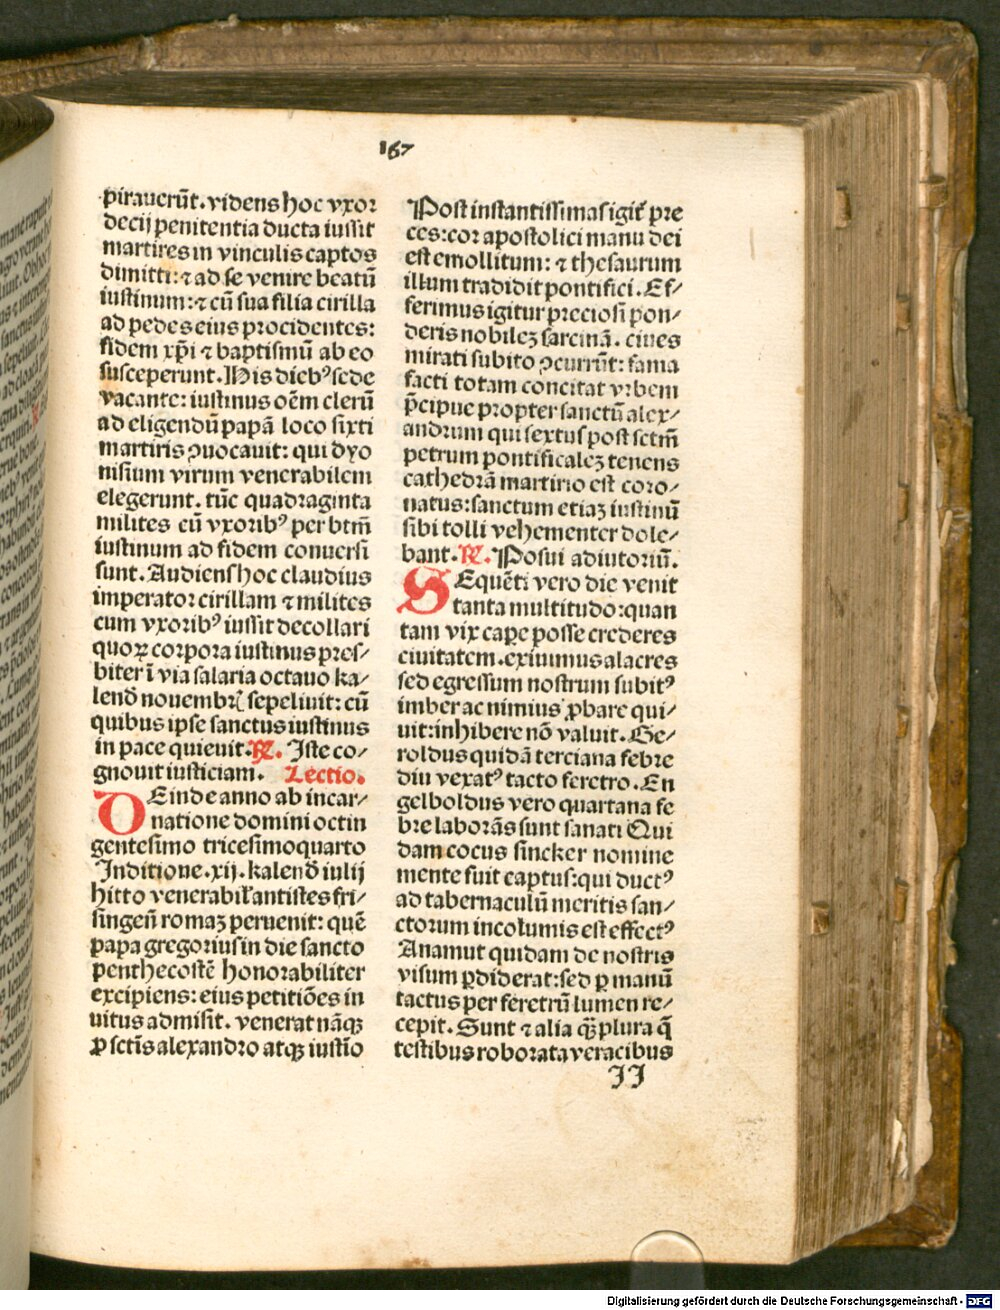 167
pirauerūt. videns hoc vxor
decij penitentia ducta iussit
martires in vinculis captos
dimitti: ⁊ ad se venire beatū
iustinum: ⁊ cū sua filia cirilla
ad pedes eius procidentes:
fidem xp̄i ⁊ baptismū ab eo
susceperunt. His diebꝰ sede
vacante: iustinus oēm clerū
ad eligendū papā loco sixti
martiris ꝯuocauit: qui dyo
nisium virum venerabilem
elegerunt. tūc quadraginta
milites cū vxoribꝰ per btm̄
iustinum ad fidem conuersi
sunt. Audiens hoc claudius
imperator cirillam ⁊ milites
cum vxoribꝰ iussit decollari
quoꝝ corpora iustinus pres⸗
biter ī via salaria octauo ka⸗
lend̄ nouembr̄ sepeliuit: cū
quibus ipse sanctus iustinus
in pace quieuit. ℞. Iste co⸗
gnouit iusticiam. Lectio.
DEinde anno ab incar⸗
natione domini octin
gentesimo tricesimoquarto
Inditione. xij. kalend̄ iulij
hitto venerabil̄ antistes fri⸗
singen̄ romaꝫ peruenit: quē
papa gregorius in die sancto
penthecostē honorabiliter
excipiens: eius petitiōes in
uitus admisit. venerat nāqꝫ
ꝓ sctīs alexandro atqꝫ iustīo
Post instantissimas igit̄ pre
ces: cor apostolici manu dei
est emollitum: ⁊ thesaurum
illum tradidit pontifici. Ef⸗
ferimus igitur preciosi pon⸗
deris nobileꝫ sarcinā. ciues
mirati subito ꝯcurrūt: fama
facti totam concitat vrbem
p̄cipue propter sanctū alex⸗
andrum qui sextus post sctm̄
petrum pontificaleꝫ tenens
cathedrā martirio est coro⸗
natus: sanctum etiaꝫ iustinū
sibi tolli vehementer dole⸗
bant. ℞. Posui adiutoriū.
SEquēti vero die venit
tanta multitudo: quan
tam vix caꝑe posse crederes
ciuitatem. exiuimus alacres
sed egressum nostrum subitꝰ
imber ac nimius ꝓbare qui⸗
uit: inhibere nō valuit. Ge⸗
roldus quidā terciana febre
diu vexatꝰ tacto feretro. En
gelboldus vero quartana fe
bre laborās sunt sanati Qui
dam cocus sincker nomine
mente fuit captus: qui ductꝰ
ad tabernaculū meritis san⸗
ctorum incolumis est effectꝰ
Anamut quidam de nostris
visum ꝑdiderat: sed ꝑ manū
tactus per feretrū lumen re⸗
cepit. Sunt ⁊ alia qꝫ̄ plura q̄
testibus roborata veracibus
II
Digitalisierung gefördert durch die Deutsche Forschungsgemeinschaft - DFG